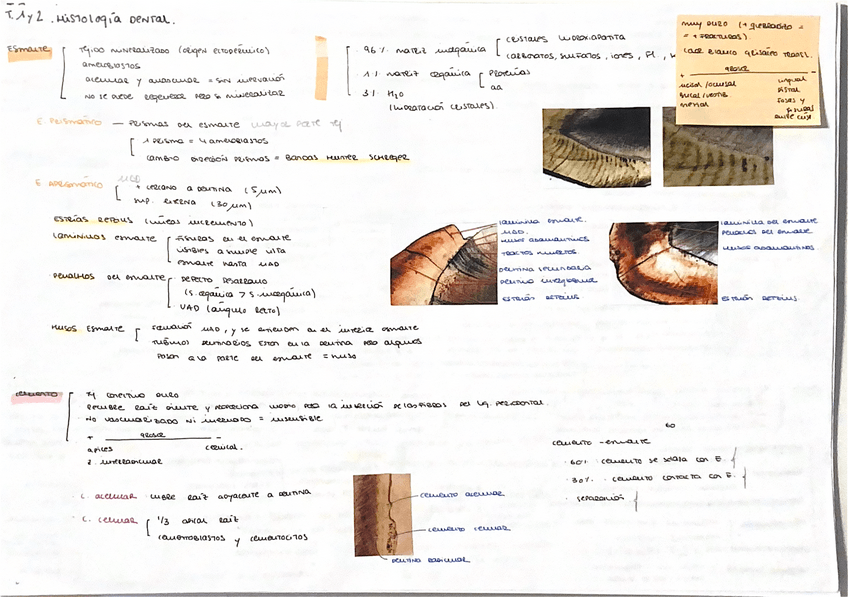 T. 1 y 2. HISTOLOGÍA DENTAL.
ESMALTE
Tejido mineralizado (origen ectodérmico)
ameloblastos
acelular y avascular = sin inervación
no se puede regenerar pero si mineralizar
96% matriz inorgánica
cristales hidroxiapatita
carbonatos, sulfatos, iones, Fl,
1% matriz orgánica
proteínas
aa
3% H₂O
(hidratación cristales)
muy duro (+ quebradizo =
= + fracturas)
color blanco grisáceo transl.
+ grosor -
incisal / oclusal
lingual
distal
mesial
fosas y
fisuras
E. PRISMÁTICO — prismas del esmalte mayor parte tej
1 prisma = 4 ameloblastos
cambio dirección prismas = Bandas Hunter Schreger
E. APRISMÁTICO
UAD
+ cercano a dentina (5 µm)
sup. externa (30 µm)
ESTRÍAS RETZIUS (líneas incremento)
LAMINILLAS ESMALTE
fisuras en el esmalte
visibles a simple vista
esmalte hasta UAD
PENACHOS DEL ESMALTE
defecto desarrollo
(s. orgánica > s. inorgánica)
UAD (ángulo recto)
HUSOS ESMALTE
UAD, y se extienden en el interior esmalte
túbulos dentinarios están en la dentina pero algunos
pasan a la parte del esmalte = huso
laminilla esmalte.
UAD.
husos adamantinos
tractos muertos
dentina secundaria
dentina interglobular
estrías retzius
laminilla del esmalte
penachos del esmalte
husos adamantinos.
estrías retzius.
CEMENTO
Tej conectivo duro
recubre raíz diente y proporciona medio para la inserción de las fibras del lig. periodontal.
no vascularizado ni inervado = insensible
+ grosor -
ápices cervical.
z. interradicular
60
cemento - esmalte
· 60% · cemento se solapa con E.
· 30% · cemento contacta con E.
· separación
· C. acelular · cubre raíz adyacente a dentina
· C. celular
1/3 apical raíz
cementoblastos y cementocitos
cemento acelular
cemento celular
dentina radicular